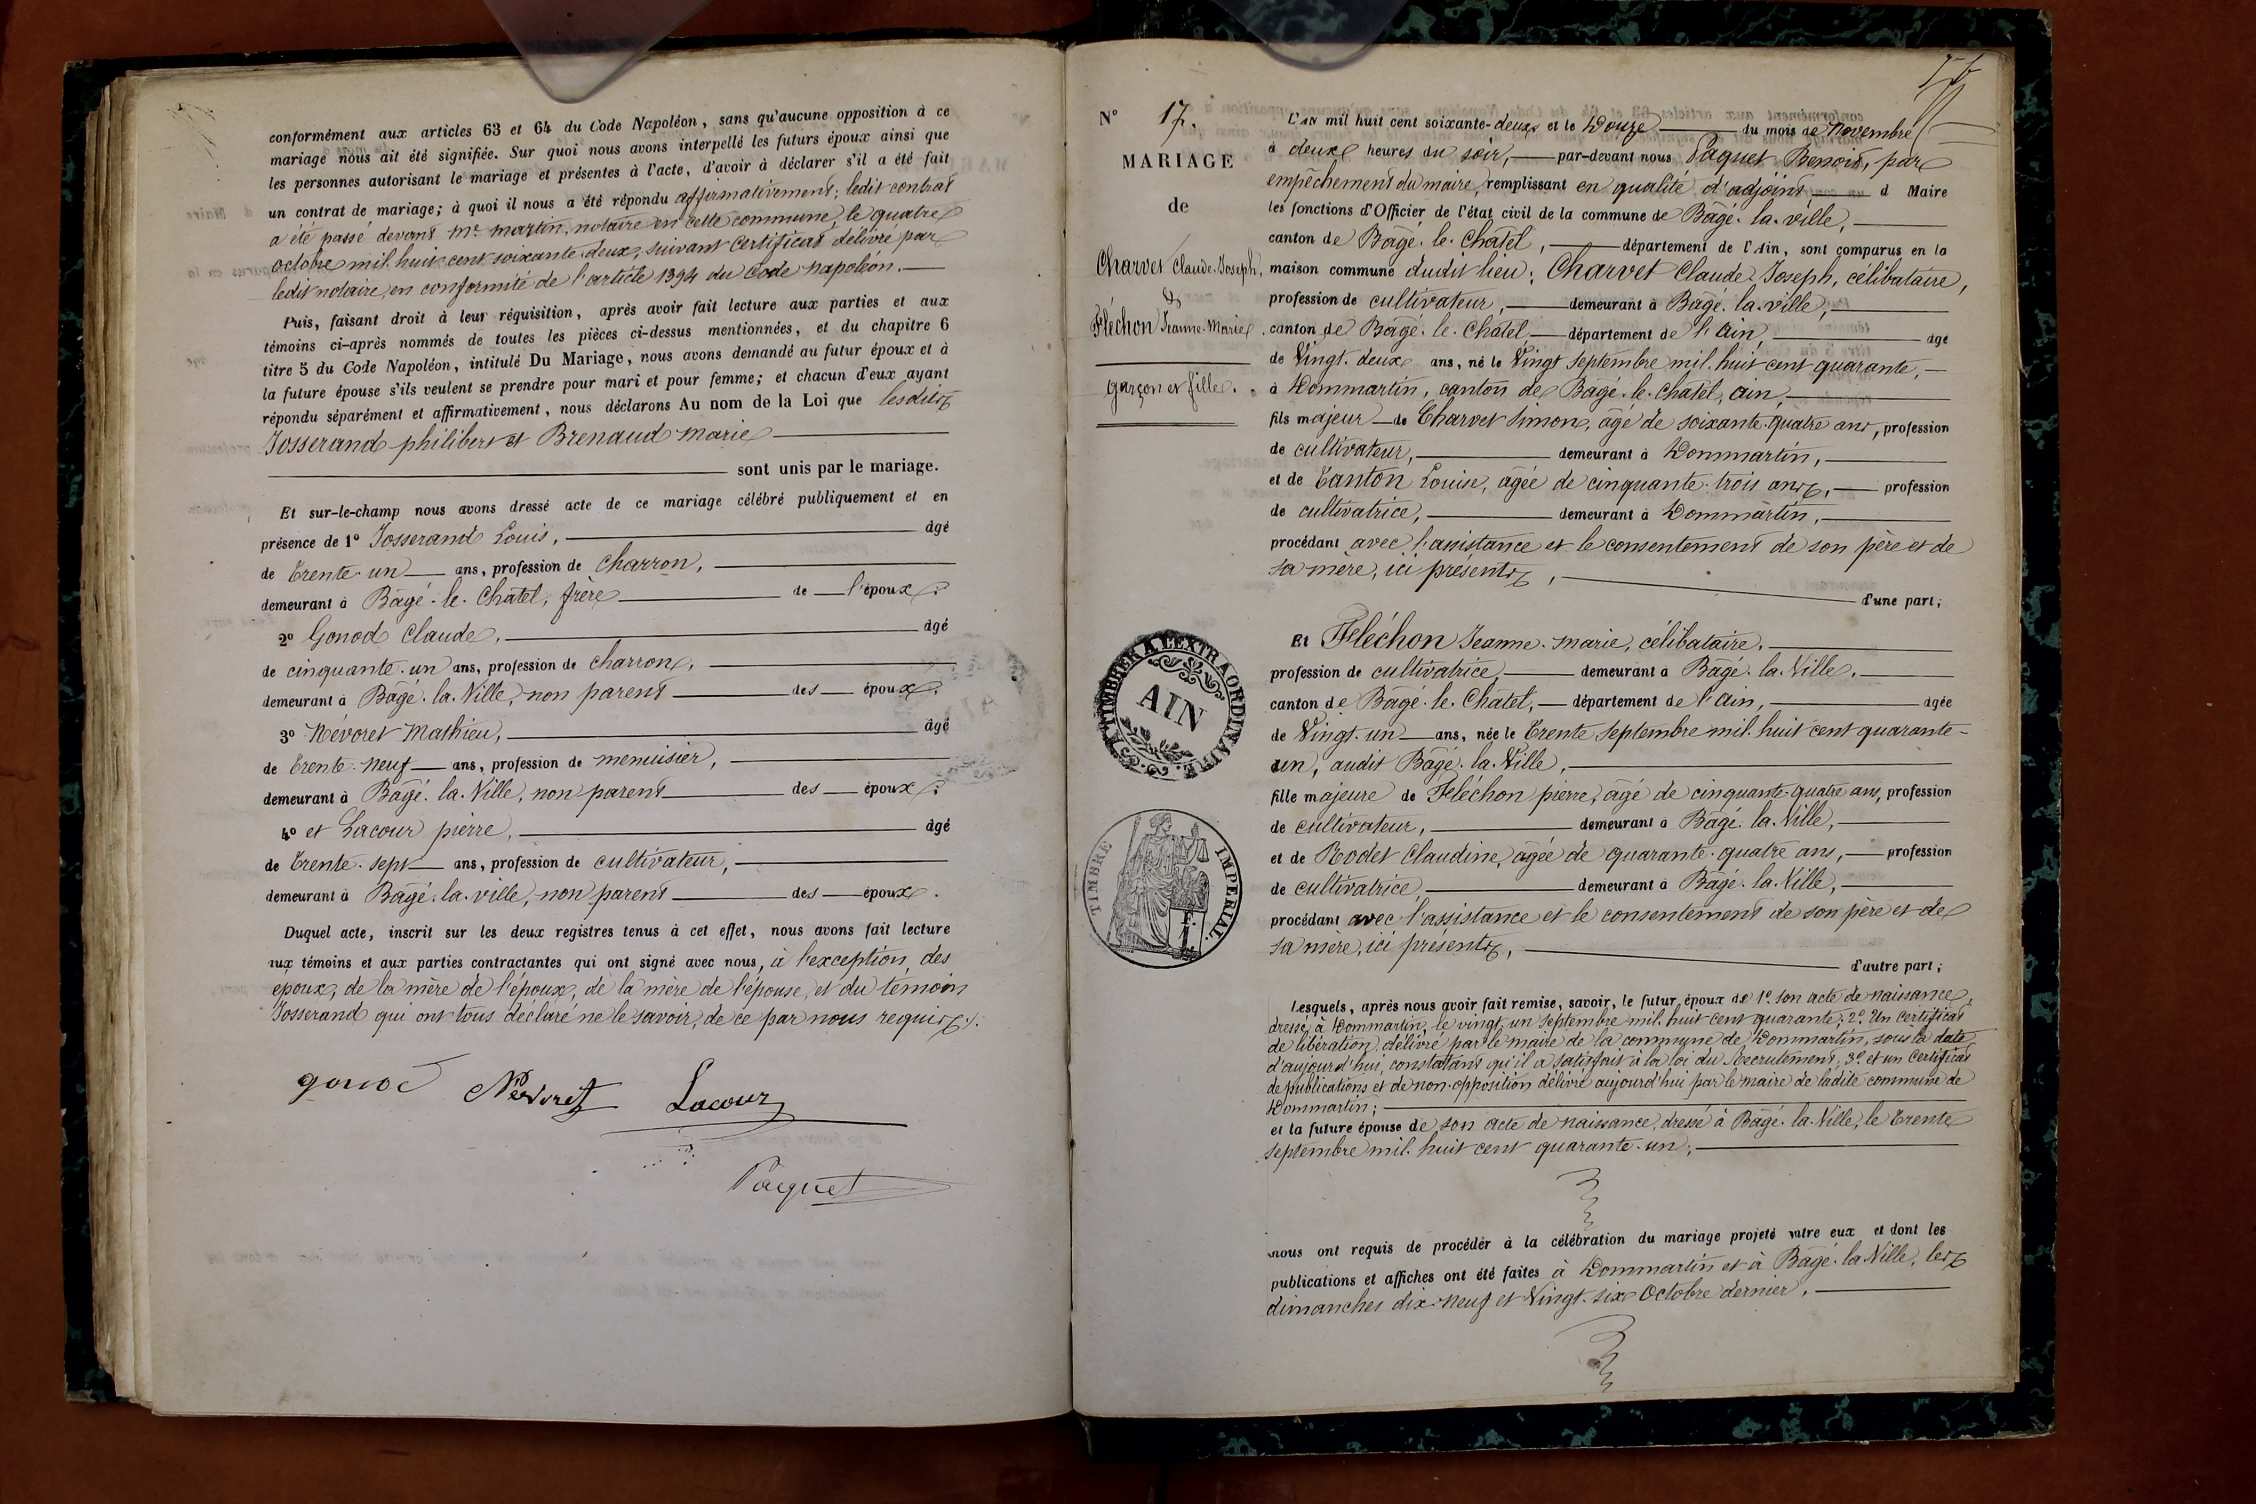 conformément aux articles 63 et 64 du Code Napoléon, sans qu'aucune opposition à ce
mariage nous ait été signifiée. Sur quoi nous avons interpellé les futurs époux ainsi que
les personnes autorisant le mariage et présentes à l'acte, d'avoir à déclarer s'il a été fait
un contrat de mariage; à quoi il nous a été répondu affirmativement; ledit contrat
a été passé devant Me. Martin, notaire en cette commune, le quatre
octobre mil huit cent soixante deux, suivant certificat délivré par
ledit notaire, en conformité de l'article 1394 du Code Napoléon.
Puis, faisant droit à leur réquisition, après avoir fait lecture aux parties et aux
témoins ci-après nommés de toutes les pièces ci-dessus mentionnées, et du chapitre 6
titre 5 du Code Napoléon, intitulé Du Mariage, nous avons demandé au futur époux et à
la future épouse s'ils veulent se prendre pour mari et pour femme; et chacun d'eux ayant
répondu séparément et affirmativement, nous déclarons Au nom de la Loi que lesdits
Josserand philibert et Brenaud marie
sont unis par le mariage.
Et sur-le-champ nous avons dressé acte de ce mariage célébré publiquement et en
présence de 1º Josserand Louis, âgé
de trente-un ans, profession de charron,
demeurant à Bâgé-le-Châtel, frère de l'époux;
2º Gonod Claude, âgé
de cinquante-un ans, profession de charron,
demeurant à Bâgé-la-Ville, non parent des époux;
3º Névoret Mathieu, âgé
de trente-neuf ans, profession de menuisier,
demeurant à Bâgé-la-Ville, non parent des époux;
4º et Lacour pierre, âgé
de trente-sept ans, profession de cultivateur,
demeurant à Bâgé-la-ville, non parent des époux.
Duquel acte, inscrit sur les deux registres tenus à cet effet, nous avons fait lecture
aux témoins et aux parties contractantes qui ont signé avec nous, à l'exception des
époux, de la mère de l'époux, de la mère de l'épouse, et du témoin
Josserand qui ont tous déclaré ne le savoir, de ce par nous requis.
gonod Névoret Lacour
Paquet
Nº 17.
MARIAGE
de
Charvet Claude-Joseph,
&
Fléchon Jeanne-Marie.
garçon et fille.
L'AN mil huit cent soixante-deux et le Douze du mois de Novembre
à deux heures du soir, par-devant nous Paquet Benoit, par
empêchement du maire, remplissant en qualité d'adjoint d Maire
les fonctions d'Officier de l'état civil de la commune de Bâgé-la-ville,
canton de Bâgé-le-Châtel, département de l'Ain, sont comparus en la
maison commune dudit lieu; Charvet Claude Joseph, célibataire,
profession de cultivateur, demeurant à Bâgé-la-ville,
canton de Bâgé-le-Châtel, département de l'Ain, âgé
de Vingt-deux ans, né le Vingt Septembre mil huit cent quarante,
à Dommartin, canton de Bâgé-le-Châtel, Ain,
fils majeur de Charvet Simon, âgé de soixante-quatre ans, profession
de cultivateur, demeurant à Dommartin,
et de Tanton Louise, âgée de cinquante-trois ans, profession
de cultivatrice, demeurant à Dommartin,
procédant avec l'assistance et le consentement de son père et de
sa mère, ici présents,
d'une part;
Et Fléchon Jeanne-Marie, célibataire,
profession de cultivatrice, demeurant à Bâgé-la-Ville,
canton de Bâgé-le-Châtel, département de l'Ain, âgée
de Vingt-un ans, née le Trente Septembre mil huit cent quarante-
un, audit Bâgé-la-Ville,
fille majeure de Fléchon pierre, âgé de cinquante-quatre ans, profession
de cultivateur, demeurant à Bâgé-la-Ville,
et de Rodet Claudine, âgée de quarante-quatre ans, profession
de cultivatrice, demeurant à Bâgé-la-Ville,
procédant avec l'assistance et le consentement de son père et de
sa mère, ici présents,
d'autre part;
Lesquels, après nous avoir fait remise, savoir, le futur époux de 1º son acte de naissance,
dressé à Dommartin, le vingt-un Septembre mil huit cent quarante; 2º Un Certificat
de libération délivré par le maire de la commune de Dommartin, sous la date
d'aujourd'hui, constatant qu'il a satisfait à la loi du Recrutement; 3º et un Certificat
de publications et de non-opposition délivré aujourd'hui par le maire de ladite commune de
Dommartin;
et la future épouse de son acte de naissance, dressé à Bâgé-la-Ville, le Trente
septembre mil huit cent quarante-un;
nous ont requis de procéder à la célébration du mariage projeté entre eux et dont les
publications et affiches ont été faites à Dommartin et à Bâgé-la-Ville, les
dimanches dix-neuf et Vingt-six Octobre dernier,
TIMBRE A L'EXTRAORDINAIRE
AIN
TIMBRE IMPERIAL